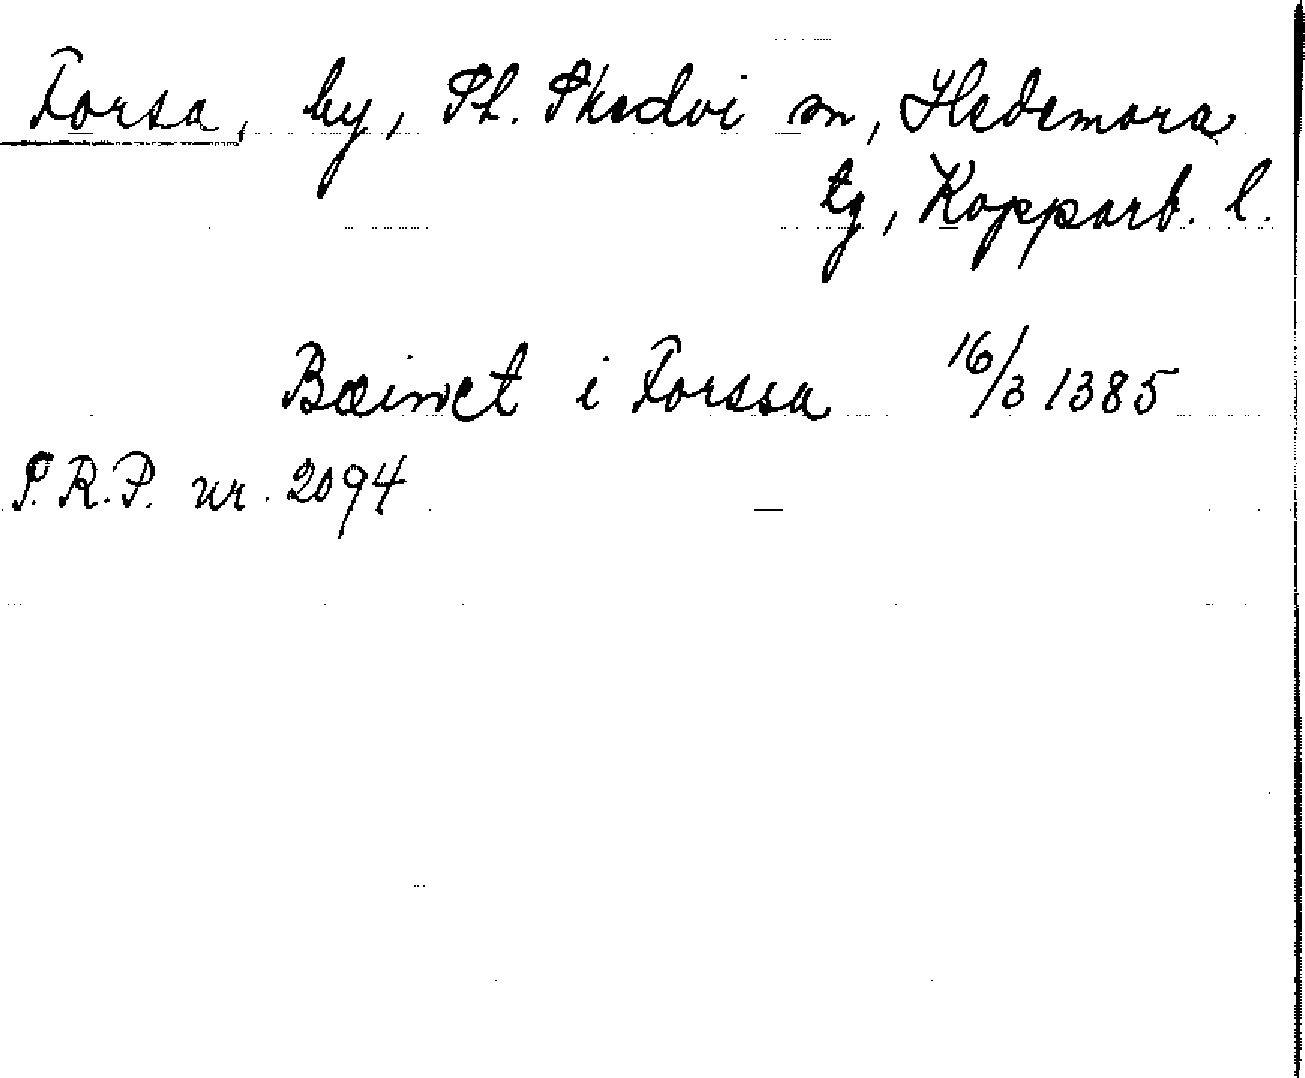 Forsa, by, St. Skedvi sn, Hedemora
tg, Kopparb. l.
Bæinct i Forssa 16/3 1385
S.R.P. nr. 2094